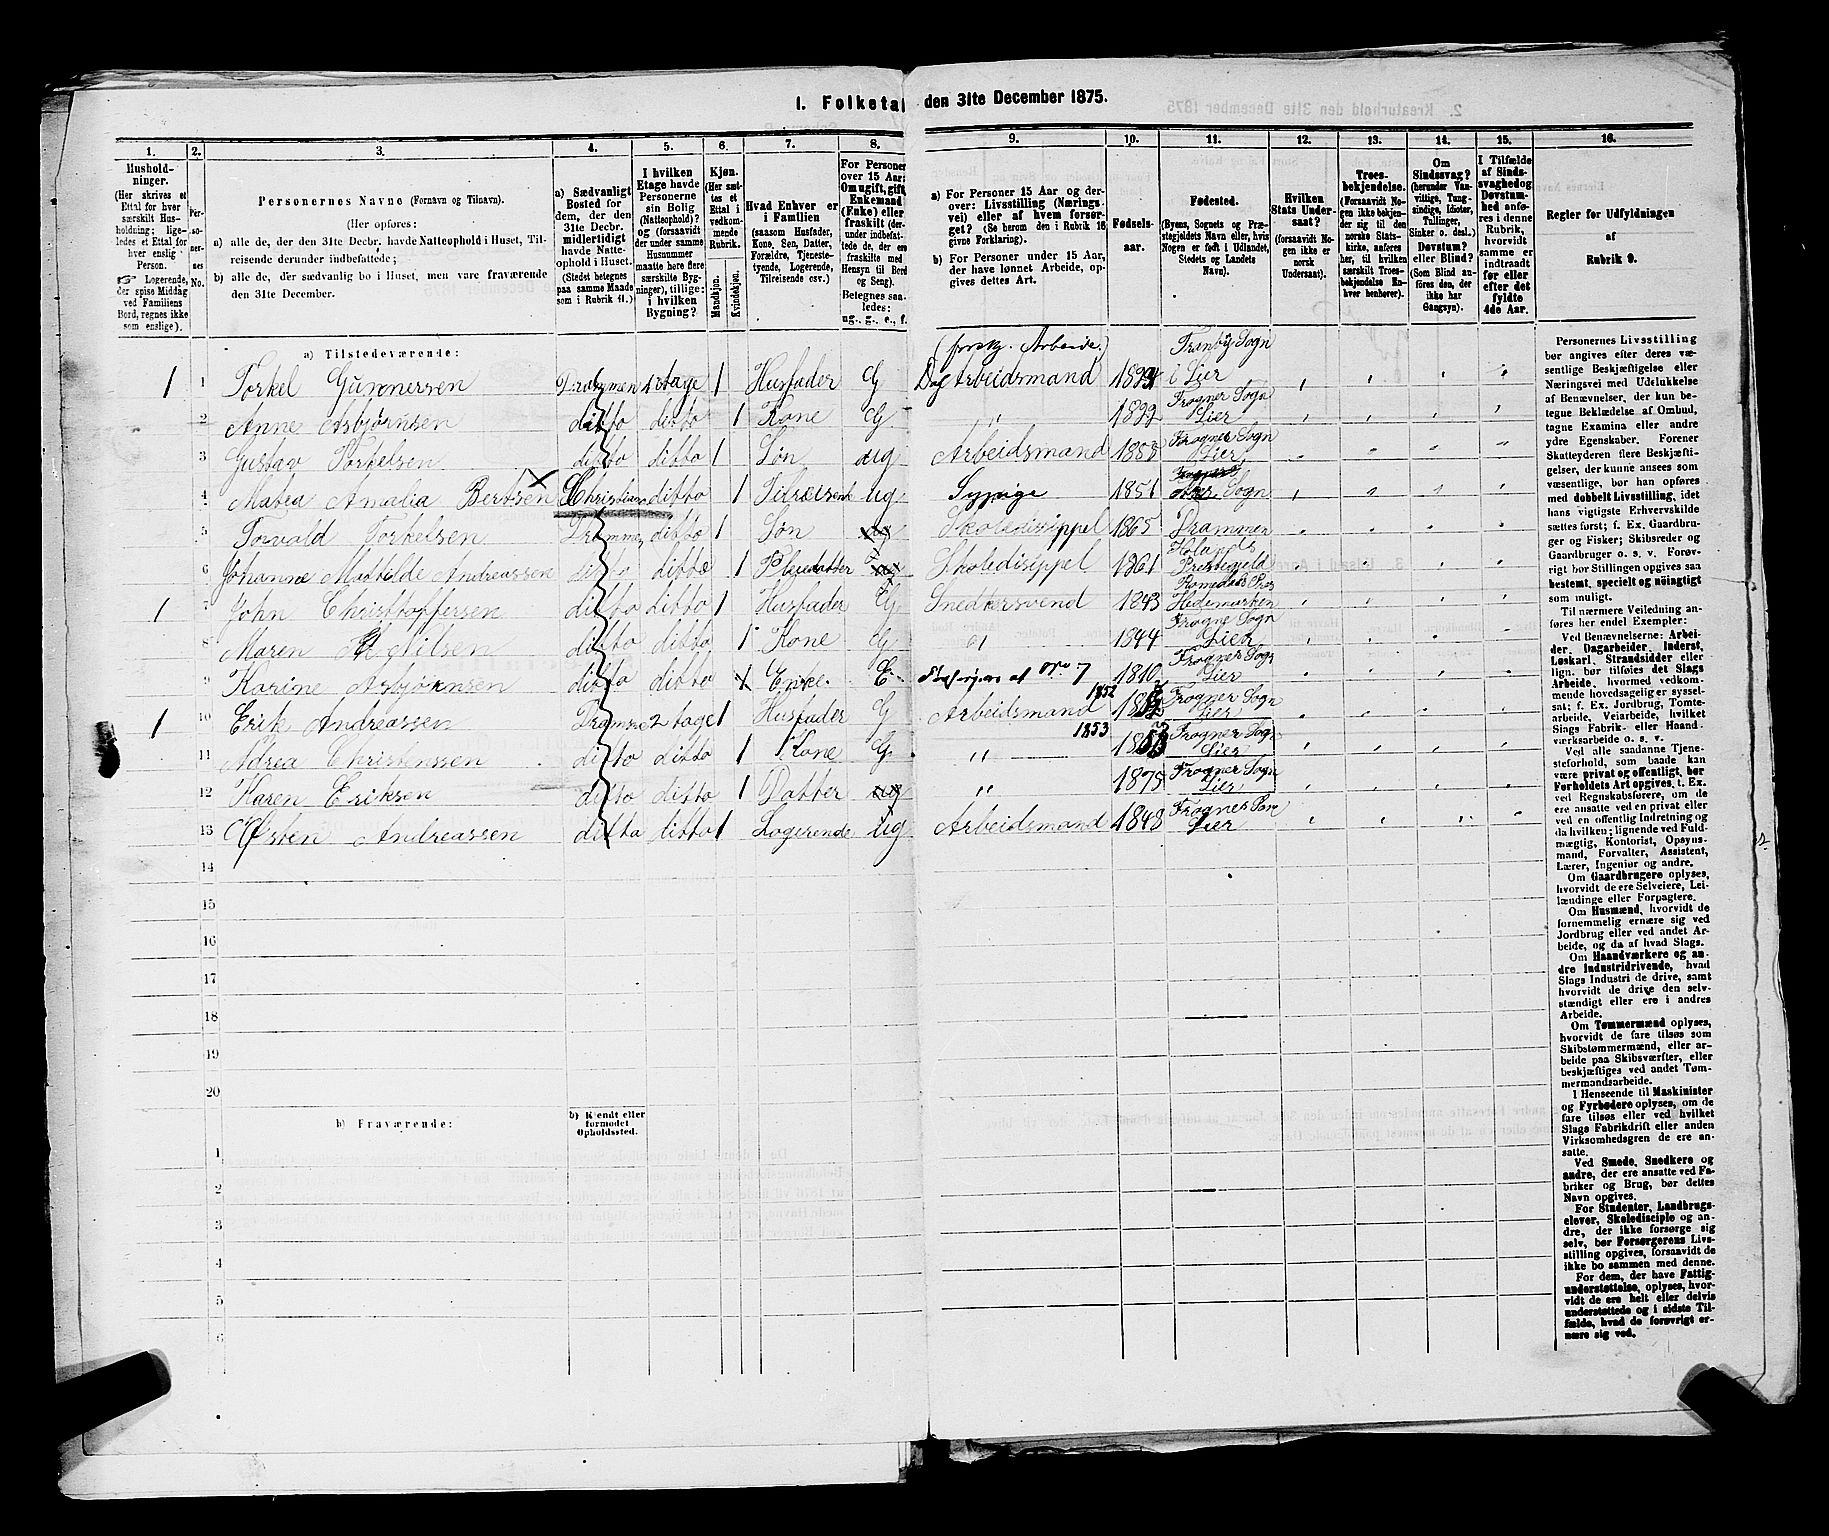 I. Folketal den 31te December 1875.
1. 2. 3. 4. 5. 6. 7. 8. 9. 10. 11. 12. 13. 14. 15. 16.
Husholdninger.
(Her skrives et Ettal for hver særskilt Husholdning; ligeledes et Ettal for hver enslig Person.
☞ Logerende, der spise Middag ved Familiens Bord, regnes ikke som enslige).
Personernes No.
Personernes Navne (Fornavn og Tilnavn).
(Her opføres:
a) alle de, der den 31te Decbr. havde Natteophold i Huset, Tilreisende derunder indbefattede;
b) alle de, der sædvanlig bo i Huset, men vare fraværende den 31te December.
a) Sædvanligt Bosted for dem, der den 31te Decbr. midlertidigt havde Natteophold i Huset.
(Stedet betegnes paa samme Maade som i Rubrik 11.)
I hvilken Etage havde Personerne sin Bolig (Natteophold)?
og (forsaavidt der under samme Husnummer maatte høre flere særskilte Bygninger), tillige: i hvilken Bygning?
Kjøn.
(Her sættes et Ettal i vedkommende Rubrik.
Mandkjøn.
Kvindekjøn.
Hvad Enhver er i Familien
(saasom Husfader, Kone, Søn, Datter, Forældre, Tjenestetyende, Logerende, Tilreisende osv.)
For Personer over 15 Aar: Om ugift, gift, Enkemand (Enke) eller fraskilt (derunder indbefattede de, der ere fraskilte med Hensyn til Bord og Seng).
Betegnes saaledes: ug., g., e., f.
a) For Personer 15 Aar og derover: Livsstilling (Næringsvei) eller af hvem forsørget? (Se herom den i Rubrik 16 givne Forklaring).
b) For Personer under 15 Aar, der have lønnet Arbeide, opgives dettes Art.
Fødselsaar.
Fødested.
(Byens, Sognets og Præstegjeldets Navn eller, hvis Nogen er født i Udlandet, Stedets og Landets Navn).
Hvilken Stats Undersaat?
(forsaavidt Nogen ikke er norsk Undersaat).
Troesbekjendelse.
(Forsaavidt Nogen ikke bekjender sig til den norske Statskirke, anføres her, til hvilken særskilt Troesbekjendelse Enhver henhører).
Om Sindssvag? (herunder Vanvittige, Tungsindige, Idioter, Tullinger, Sinker o. desl.) Døvstum? eller Blind? (Som Blind anføres den, der ikke har Gangsyn).
I Tilfælde af Sindssvaghed og Døvstumhed anføres i denne Rubrik, hvorvidt samme er indtraadt før eller efter det fyldte 4de Aar.
Regler for Udfyldningen af Rubrik 9.
a) Tilstedeværende:
(forsk. Arbeide.)
1 1 Torkel Gunnersen Drammen 1 Etage 1 Husfader G Dag Arbeidsmand 1824 Tranby Sogn i Lier
2 Anne Asbjørnsen ditto ditto 1 Kone G " 1822 Frogner Sogn Lier
3 Gustav Torkelsen ditto ditto 1 Søn ug Arbeidsmand 1855 Frogner Sogn Lier
4 Matea Amalia Berntsen Christiania ditto 1 Tilreisende ug Sypige 1851 Sogn
5 Torvald Torkelsen Drammen ditto 1 Søn ug Skoledisippel 1865 Drammen
6 Johanne Mathilde Andreassen ditto ditto 1 Pleiedatter ug Skoledisippel 1861 Hølands Prestegjeld
1 7 John Christtoffersen ditto ditto 1 Husfader G Snedkersvend 1843 Romedals Præs Hedemarken
8 Maren Nilsen ditto ditto 1 Kone G " 1844 Frogne Sogn Lier
9 Karine Asbjørnsen ditto ditto 1 Enke E. af No. 7 1810 Frogner Sogn Lier
1 10 Erik Andreassen Dramme 2 tage 1 Husfader G Arbeidsmand 1852 Frogner Sogn Lier
11 Adrea Christenssen ditto ditto 1 Kone G " 1853 Frogner Sogn Lier
12 Karen Eriksen ditto ditto 1 Datter ug " 1875 Frogner Sogn Lier
13 Østen Andreassen ditto ditto 1 Logerende ug Arbeidsmand 1848 Frogner Lier
14
15
16
17
18
19
20
b) Fraværende:
b) Kjendt eller formodet Opholdssted.
1
2
3
4
5
6
Personernes Livsstilling bør angives efter deres væsentlige Beskjæftigelse eller Næringsvei med Udelukkelse af Benævnelser, der kun betegne Bekladelse af Ombud, tagne Examina eller andre ydre Egenskaber. Forener Skatteyderen flere Beskjæftigelser, der kunne ansees som væsentlige, bør han opføres med dobbelt Livsstilling, idet hans vigtigste Erhvervskilde sættes først; f. Ex. Gaardbruger og Fisker; Skibsreder og Gaardbruger o. s. v. Forøvrigt bør Stillingen opgives saa bestemt, specielt og nøiagtigt som muligt.
Til nærmere Veiledning anføres her endel Exempler:
Ved Benævnelserne: Arbeider, Dagarbeider, Inderst, Løskarl, Strandsidder eller lign. bør tilføies det Slags Arbeide, hvormed vedkommende hovedsagelig er sysselsat; f. Ex. Jordbrug, Tomtearbeide, Veiarbeide, hvilket Slags Fabrik- eller Haandværksarbeide o. s. v.
Ved alle saadanne Tjenesteforhold, som baade kan være privat og offentligt, bør Forholdets Art opgives, f. Ex. ved Regnskabsførere, om de ere ansatte ved en privat eller ved en offentlig Indretning og da hvilken; lignende ved Fuldmægtig, Kontorist, Opsynsmand, Forvalter, Assistent, Lærer, Ingeniør og andre.
Om Gaardbrugere oplyses, hvorvidt de ere Selveiere, Leilændinge eller Forpagtere.
Om Husmænd, hvorvidt de fornemmelig ernære sig ved Jordbrug eller ved andet Arbeide, og da af hvad Slags.
Om Haandværkere og andre Industridrivende, hvad Slags Industri de drive, samt hvorvidt de drive den selvstændigt eller ere i andres Arbeide.
Om Tømmermænd oplyses, hvorvidt de fare tilsøs som Skibstømmermænd, eller arbeide paa Skibsværfter, eller beskjæftiges ved andet Tømmermandsarbeide.
I Henseende til Maskinister og Fyrbødere oplyses, om de fare tilsøs eller ved hvilket Slags Fabrikdrift eller anden Virksomhedsgren de ere ansatte.
Ved Smede, Snedkere og andre, der ere ansatte ved Fabriker og Brug, bør dettes Navn opgives.
For Studenter, Landbrugselever, Skoledisciple og andre, der ikke forsørge sig selv, bør Forsørgerens Livsstilling opgives, forsaavidt de ikke bo sammen med denne.
For dem, der have Fattigunderstøttelse, oplyses, hvorvidt de ere helt eller delvis understøttede og i sidste Tilfælde, hvad de forøvrigt ernære sig ved.